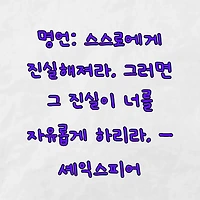 명언: 스스로에게
진실해져라. 그러면
그 진실이 너를
자유롭게 하리라. -
셰익스피어